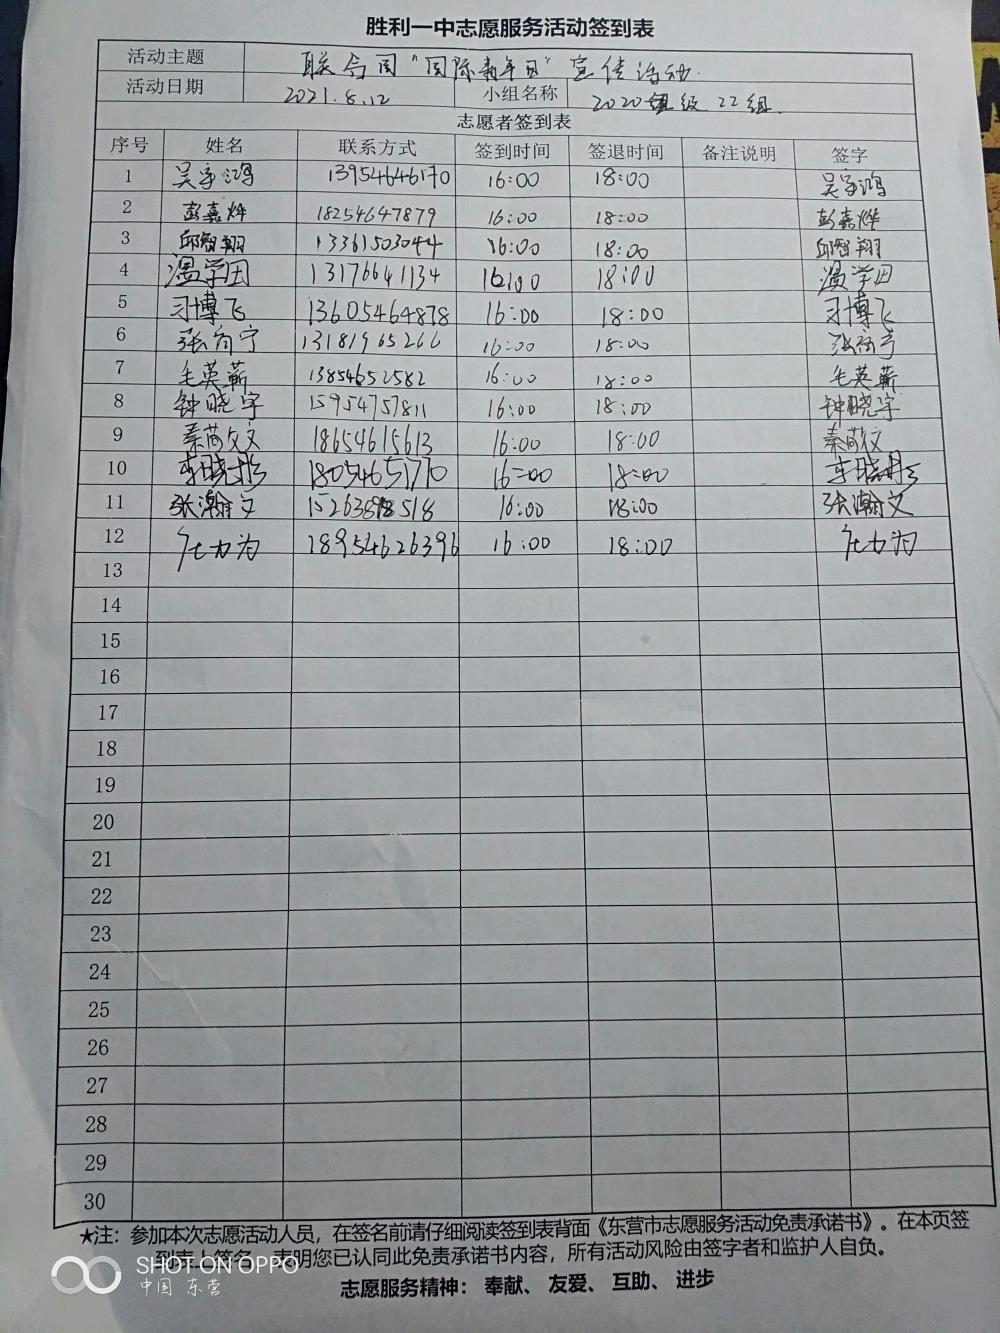 胜利一中志愿服务活动签到表
活动主题 联合国“国际青年日”宣传活动.
活动日期 2021.8.12 小组名称 2020级 22组.
志愿者签到表
序号 姓名 联系方式 签到时间 签退时间 备注说明 签字
1 吴宇鸿 13954646170 16:00 18:00 吴宇鸿
2 彭嘉烨 18254647879 16:00 18:00 彭嘉烨
3 邱智翔 13361503044 16:00 18:00 邱智翔
4 温学田 13176641134 16:00 18:00 温学田
5 习博飞 13605464878 16:00 18:00 习博飞
6 13181965266 16:00 18:00
7 毛英蕲 13854652582 16:00 18:00 毛英蕲
8 钟晓宇 15954757811 16:00 18:00 钟晓宇
9 秦苘文 18654615613 16:00 18:00 秦苘文
10 18054651770 16:00 18:00
11 张瀚文 16:00 18:00 张瀚文
12 18954626396 16:00 18:00
13
14
15
16
17
18
19
20
21
22
23
24
25
26
27
28
29
30
★注：参加本次志愿活动人员，在签名前请仔细阅读签到表背面《东营市志愿服务活动免责承诺书》。在本页签
到表上签名，表明您已认同此免责承诺书内容，所有活动风险由签字者和监护人自负。
志愿服务精神：奉献、友爱、互助、进步
SHOT ON OPPO
中国 东营